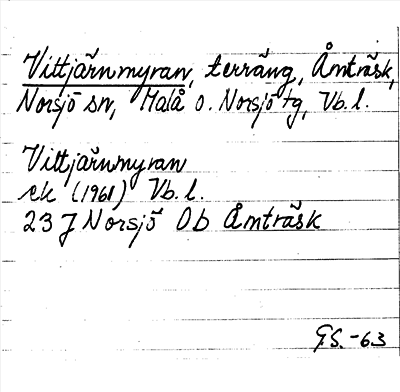 Vittjärnmyran, terräng, Åmträsk,
Norsjö sn, Malå o. Norsjö tg, Vb.l.
Vittjärnmyran
ek (1961) Vb.l.
23 J Norsjö Ob Åmträsk
G.S.-63